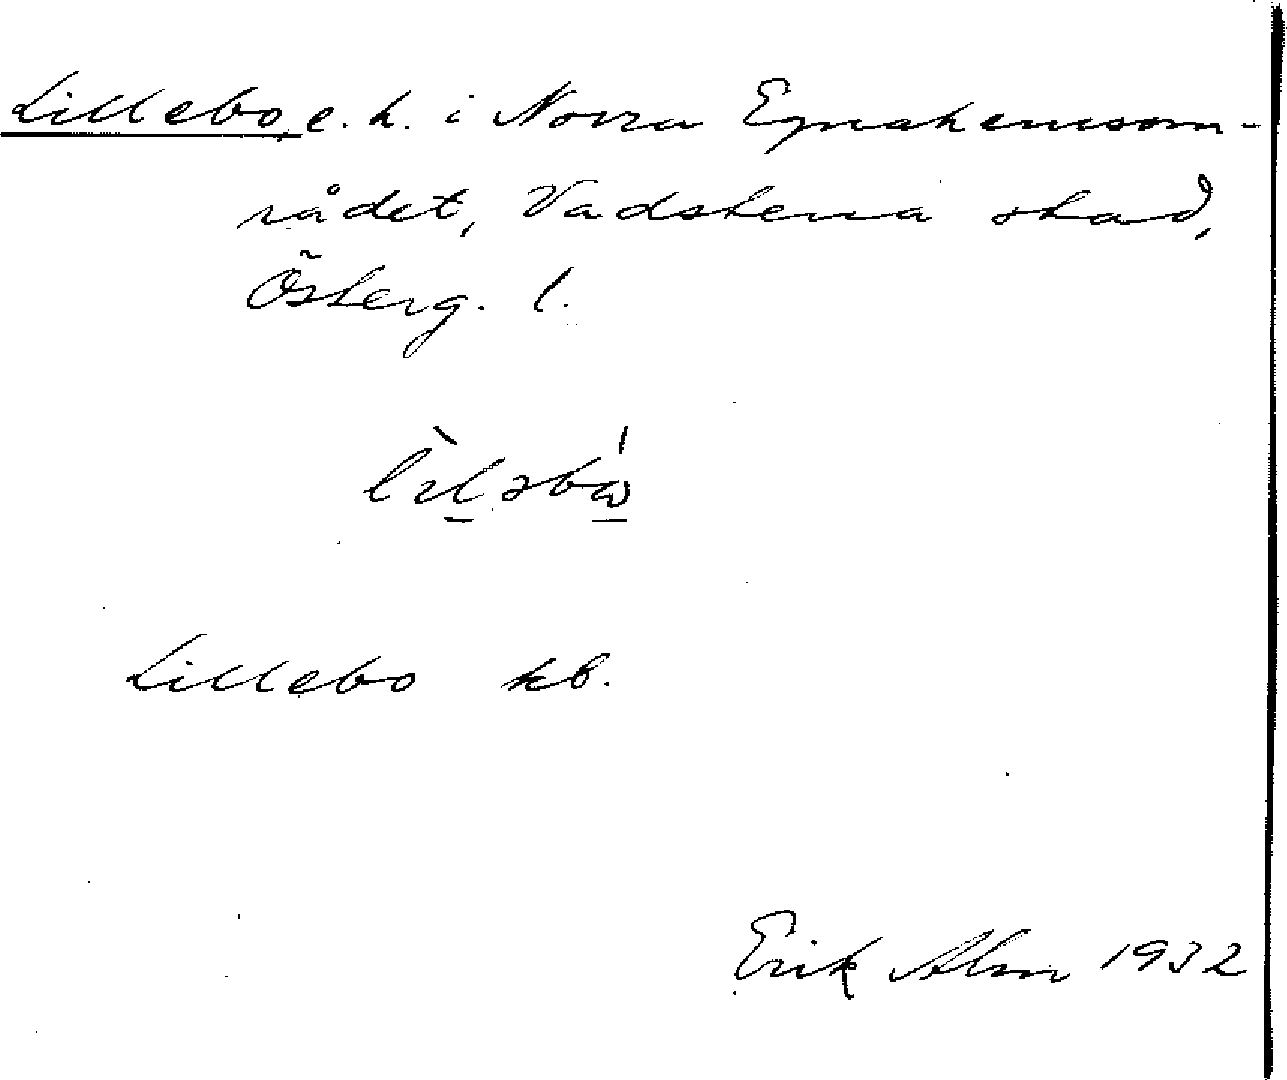 Lillebo, e. h. i Norra Egnahemsom-
rådet, Vadstena stad,
Österg. l.
Lillebo kb.
Erik Alm 1932